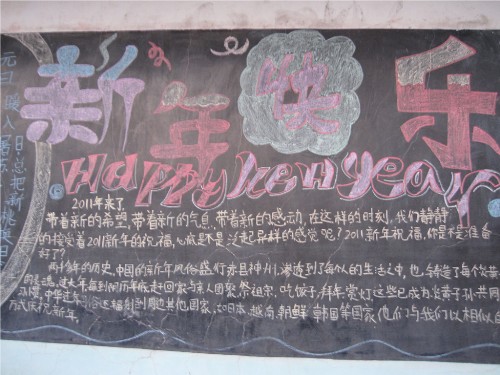 新年快乐
Happy New Year
2011年来了
带着新的希望,带着新的气息,带着新的感动,在这样的时刻,我们静静
的接受着2011新年的祝福,心底是不是泛起异样的感觉呢?2011新年祝福,你是不是准备
好了?
两千多年的历史,中国的新年风俗盛行赤县神州,渗透到了每个人的生活之中,也铸造了每个炎黄
过大年每到阴历年底赶回家与亲人团聚祭祖宗,吃饺子,拜年,赏灯这些已成为炎黄子孙共同
中华过年 辐射到周边其他国家,如日本,越南,朝鲜,韩国等国家,他们与我们以相似的
方式庆祝新年。